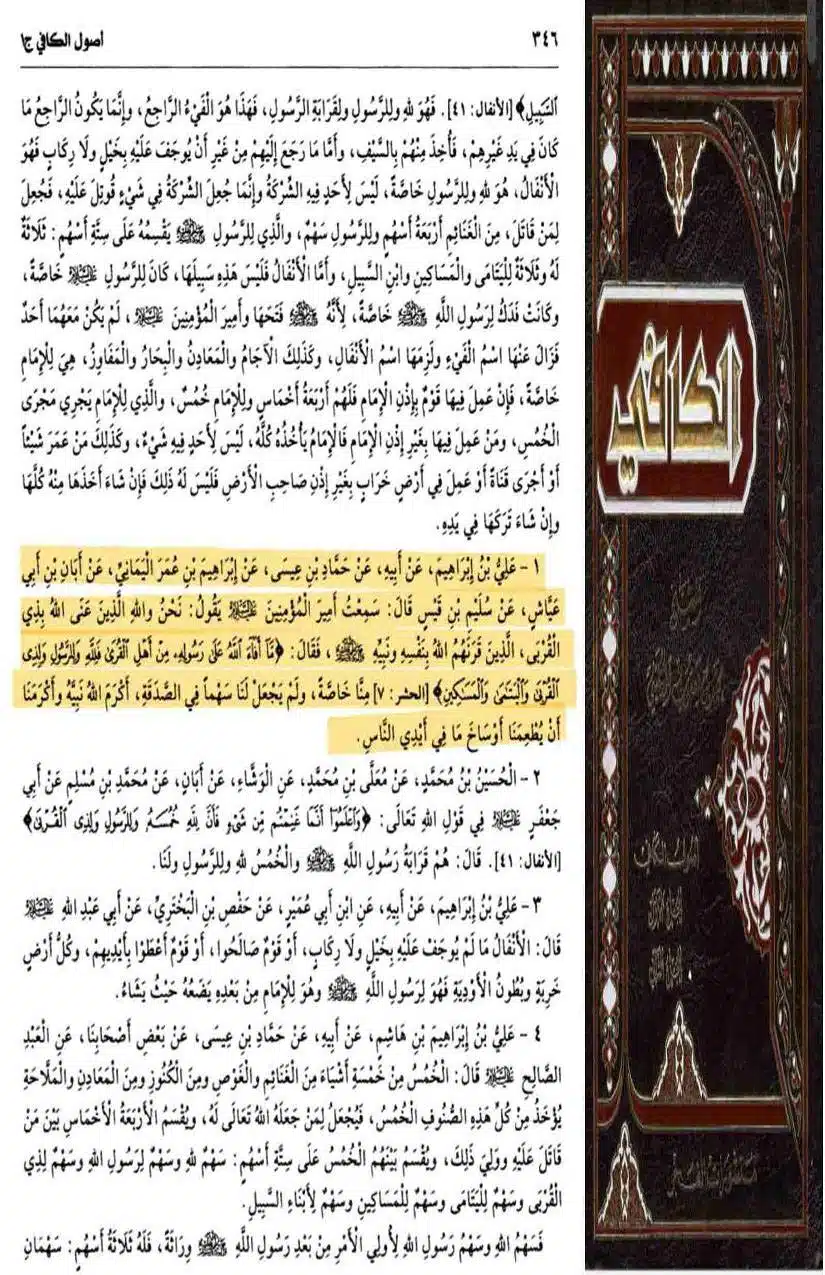 ٣٤٦
أصول الكافي ج١
ٱلسَّبِيلِ﴾ [الأنفال: ٤١]. فَهُوَ لله ولِلرَّسُولِ ولِقَرَابَةِ الرَّسُولِ، فَهَذَا هُوَ الْفَيْءُ الرَّاجِعُ، وإِنَّمَا يَكُونُ الرَّاجِعُ مَا
كَانَ فِي يَدِ غَيْرِهِمْ، فَأُخِذَ مِنْهُمْ بِالسَّيْفِ، وأَمَّا مَا رَجَعَ إِلَيْهِمْ مِنْ غَيْرِ أَنْ يُوجَفَ عَلَيْهِ بِخَيْلٍ ولَا رِكَابٍ فَهُوَ
الْأَنْفَالُ، هُوَ لله ولِلرَّسُولِ خَاصَّةً، لَيْسَ لِأَحَدٍ فِيهِ الشِّرْكَةُ وإِنَّمَا جُعِلَ الشِّرْكَةُ فِي شَيْءٍ قُوتِلَ عَلَيْهِ، فَجُعِلَ
لِمَنْ قَاتَلَ، مِنَ الْغَنَائِمِ أَرْبَعَةُ أَسْهُمٍ ولِلرَّسُولِ سَهْمٌ، والَّذِي لِلرَّسُولِ ﷺ يَقْسِمُهُ عَلَى سِتَّةِ أَسْهُمٍ: ثَلَاثَةٌ
لَهُ وثَلَاثَةٌ لِلْيَتَامَى والْمَسَاكِينِ وابْنِ السَّبِيلِ، وأَمَّا الْأَنْفَالُ فَلَيْسَ هَذِهِ سَبِيلَهَا، كَانَ لِلرَّسُولِ عليه السلام خَاصَّةً،
وكَانَتْ فَدَكُ لِرَسُولِ اللَّهِ ﷺ خَاصَّةً، لِأَنَّهُ ﷺ فَتَحَهَا وأَمِيرَ الْمُؤْمِنِينَ عليه السلام، لَمْ يَكُنْ مَعَهُمَا أَحَدٌ
فَزَالَ عَنْهَا اسْمُ الْفَيْءِ ولَزِمَهَا اسْمُ الْأَنْفَالِ، وكَذَلِكَ الْآجَامُ والْمَعَادِنُ والْبِحَارُ والْمَفَاوِزُ، هِيَ لِلْإِمَامِ
خَاصَّةً، فَإِنْ عَمِلَ فِيهَا قَوْمٌ بِإِذْنِ الْإِمَامِ فَلَهُمْ أَرْبَعَةُ أَخْمَاسٍ ولِلْإِمَامِ خُمُسٌ، والَّذِي لِلْإِمَامِ يَجْرِي مَجْرَى
الْخُمُسِ، ومَنْ عَمِلَ فِيهَا بِغَيْرِ إِذْنِ الْإِمَامِ فَالْإِمَامُ يَأْخُذُهُ كُلَّهُ، لَيْسَ لِأَحَدٍ فِيهِ شَيْءٌ، وكَذَلِكَ مَنْ عَمَرَ شَيْئاً
أَوْ أَجْرَى قَنَاةً أَوْ عَمِلَ فِي أَرْضٍ خَرَابٍ بِغَيْرِ إِذْنِ صَاحِبِ الْأَرْضِ فَلَيْسَ لَهُ ذَلِكَ فَإِنْ شَاءَ أَخَذَهَا مِنْهُ كُلَّهَا
وإِنْ شَاءَ تَرَكَهَا فِي يَدِهِ.
١ - عَلِيُّ بْنُ إِبْرَاهِيمَ، عَنْ أَبِيهِ، عَنْ حَمَّادِ بْنِ عِيسَى، عَنْ إِبْرَاهِيمَ بْنِ عُمَرَ الْيَمَانِيِّ، عَنْ أَبَانِ بْنِ أَبِي
عَيَّاشٍ، عَنْ سُلَيْمِ بْنِ قَيْسٍ قَالَ: سَمِعْتُ أَمِيرَ الْمُؤْمِنِينَ عليه السلام يَقُولُ: نَحْنُ واللهِ الَّذِينَ عَنَى اللهُ بِذِي
الْقُرْبَى، الَّذِينَ قَرَنَهُمُ اللهُ بِنَفْسِهِ ونَبِيِّهِ ﷺ، فَقَالَ: ﴿مَّآ أَفَآءَ ٱللَّهُ عَلَىٰ رَسُولِهِۦ مِنْ أَهْلِ ٱلْقُرَىٰ فَلِلَّهِ وَلِلرَّسُولِ وَلِذِى
ٱلْقُرْبَىٰ وَٱلْيَتَٰمَىٰ وَٱلْمَسَٰكِينِ﴾ [الحشر: ٧] مِنَّا خَاصَّةً، ولَمْ يَجْعَلْ لَنَا سَهْماً فِي الصَّدَقَةِ، أَكْرَمَ اللهُ نَبِيَّهُ وأَكْرَمَنَا
أَنْ يُطْعِمَنَا أَوْسَاخَ مَا فِي أَيْدِي النَّاسِ.
٢ - الْحُسَيْنُ بْنُ مُحَمَّدٍ، عَنْ مُعَلَّى بْنِ مُحَمَّدٍ، عَنِ الْوَشَّاءِ، عَنْ أَبَانٍ، عَنْ مُحَمَّدِ بْنِ مُسْلِمٍ عَنْ أَبِي
جَعْفَرٍ عليه السلام فِي قَوْلِ اللهِ تَعَالَى: ﴿وَٱعْلَمُوٓا۟ أَنَّمَا غَنِمْتُم مِّن شَىْءٍ فَأَنَّ لِلَّهِ خُمُسَهُۥ وَلِلرَّسُولِ وَلِذِى ٱلْقُرْبَىٰ﴾
[الأنفال: ٤١]. قَالَ: هُمْ قَرَابَةُ رَسُولِ اللَّهِ ﷺ والْخُمُسُ لله ولِلرَّسُولِ ولَنَا.
٣ - عَلِيُّ بْنُ إِبْرَاهِيمَ، عَنْ أَبِيهِ، عَنِ ابْنِ أَبِي عُمَيْرٍ، عَنْ حَفْصِ بْنِ الْبَخْتَرِيِّ، عَنْ أَبِي عَبْدِ الله عليه السلام
قَالَ: الْأَنْفَالُ مَا لَمْ يُوجَفْ عَلَيْهِ بِخَيْلٍ ولَا رِكَابٍ، أَوْ قَوْمٌ صَالَحُوا، أَوْ قَوْمٌ أَعْطَوْا بِأَيْدِيهِمْ، وكُلُّ أَرْضٍ
خَرِبَةٍ وبُطُونُ الْأَوْدِيَةِ فَهُوَ لِرَسُولِ اللَّهِ ﷺ وهُوَ لِلْإِمَامِ مِنْ بَعْدِهِ يَضَعُهُ حَيْثُ يَشَاءُ.
٤ - عَلِيُّ بْنُ إِبْرَاهِيمَ بْنِ هَاشِمٍ، عَنْ أَبِيهِ، عَنْ حَمَّادِ بْنِ عِيسَى، عَنْ بَعْضِ أَصْحَابِنَا، عَنِ الْعَبْدِ
الصَّالِحِ عليه السلام قَالَ: الْخُمُسُ مِنْ خَمْسَةِ أَشْيَاءَ مِنَ الْغَنَائِمِ والْغَوْصِ ومِنَ الْكُنُوزِ ومِنَ الْمَعَادِنِ والْمَلَّاحَةِ
يُؤْخَذُ مِنْ كُلِّ هَذِهِ الصُّنُوفِ الْخُمُسُ، فَيُجْعَلُ لِمَنْ جَعَلَهُ اللهُ تَعَالَى لَهُ، ويُقْسَمُ الْأَرْبَعَةُ الْأَخْمَاسِ بَيْنَ مَنْ
قَاتَلَ عَلَيْهِ ووَلِيَ ذَلِكَ، ويُقْسَمُ بَيْنَهُمُ الْخُمُسُ عَلَى سِتَّةِ أَسْهُمٍ: سَهْمٌ لله وسَهْمٌ لِرَسُولِ اللهِ وسَهْمٌ لِذِي
الْقُرْبَى وسَهْمٌ لِلْيَتَامَى وسَهْمٌ لِلْمَسَاكِينِ وسَهْمٌ لِأَبْنَاءِ السَّبِيلِ.
فَسَهْمُ الله وسَهْمُ رَسُولِ الله لِأُولِي الْأَمْرِ مِنْ بَعْدِ رَسُولِ اللَّهِ ﷺ وِرَاثَةً، فَلَهُ ثَلَاثَةُ أَسْهُمٍ: سَهْمَانِ
الكافي